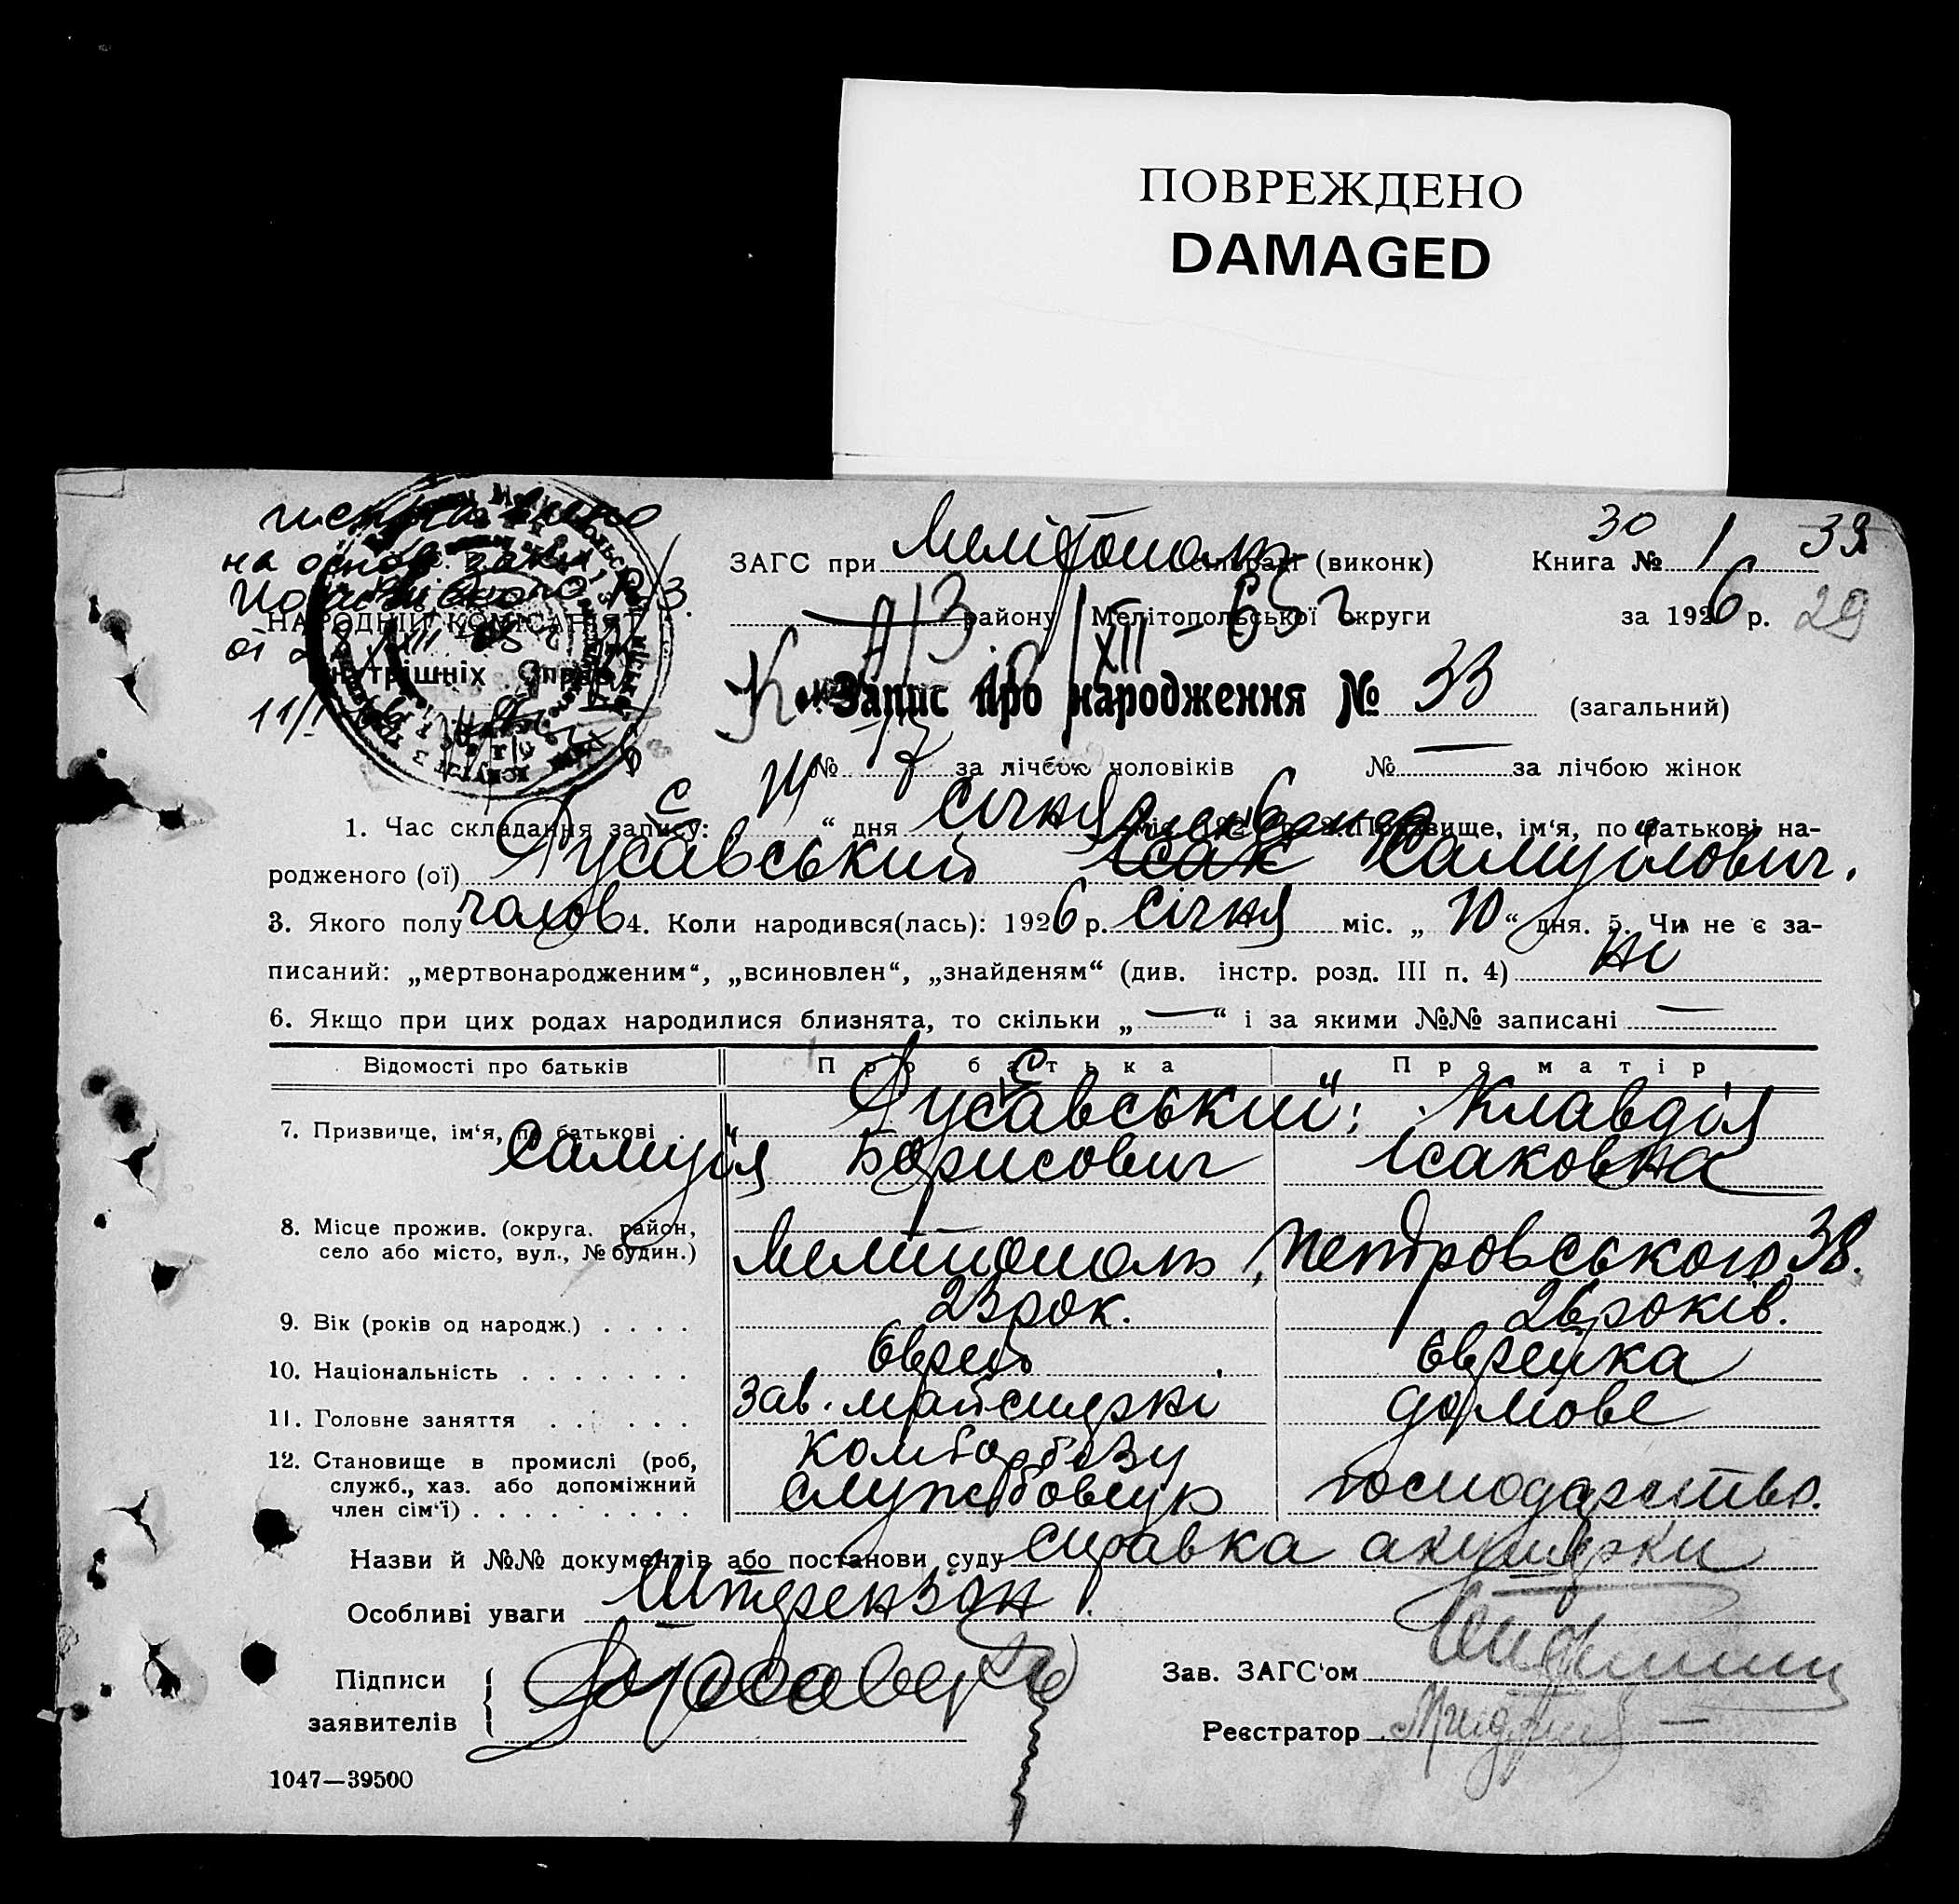 ПОВРЕЖДЕНО
DAMAGED
исправлено
на основ. закл.
от
НАРОДНІЙ КОМІСАРІЯТ
Внутрішніх Справ
ЗАГС при Мелітополь сільраді (виконк) Книга № 30 1 39
району Мелітопольської округи за 1926 р. 29
А/З XII - 65 г
Запис про народження № 33 (загальний)
№ 17 за лічбою чоловіків № — за лічбою жінок
1. Час складання запису: 14 “ дня січня міс. 1926 р. 2. Прізвище, ім‘я, по батькові на-
Александр
родженого (ої) Русавський Ісак Самуілович.
3. Якого полу чолов 4. Коли народився(лась): 1926 р. січня міс. „ 10 “ дня. 5. Чи не є за-
писаний: „мертвонародженим“, „всиновлен“, „знайденям“ (див. інстр. розд. III п. 4) Ні
6. Якщо при цих родах народилися близнята, то скільки „ — “ і за якими №№ записані —
Відомості про батьків Про батька Про матір
7. Призвище, ім‘я, по батькові Русавський; Клавдія
Самуіл Борисович Ісаковна
8. Місце прожив. (округа. район,
село або місто, вул., № будин.) Мелитополь, Петровського 38.
9. Вік (років од народж.) . . . . 23 рок. 26 років.
10. Національність . . . . . . . Єврей Єврейка
11. Головне заняття . . . . . . Зав. майстерні домове
12. Становище в промислі (роб,
служб., хаз. або допоміжний
член сім‘ї) . . . . . . . .
Комборбезу
Службовець господарство.
Назви й №№ документів або постанови суду справка акушерки
Особливі уваги Штерензон.
Підписи
заявителів
Зав. ЗАГС‘ом
Реєстратор
1047—39500